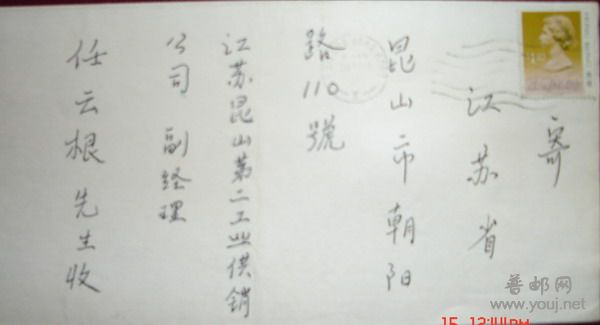 寄
江苏省
昆山市朝阳
路110號
江苏昆山第二工业供銷
公司 副經理
任云根先生收
普邮网
www.youj.net